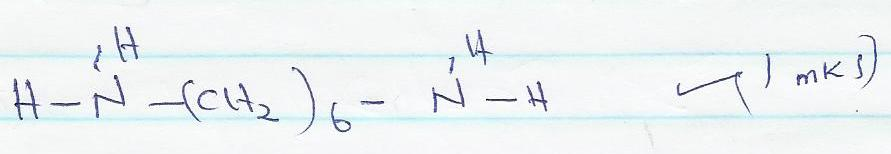 H H
H-N-(CH₂)₆-N-H ✓(1 mks)